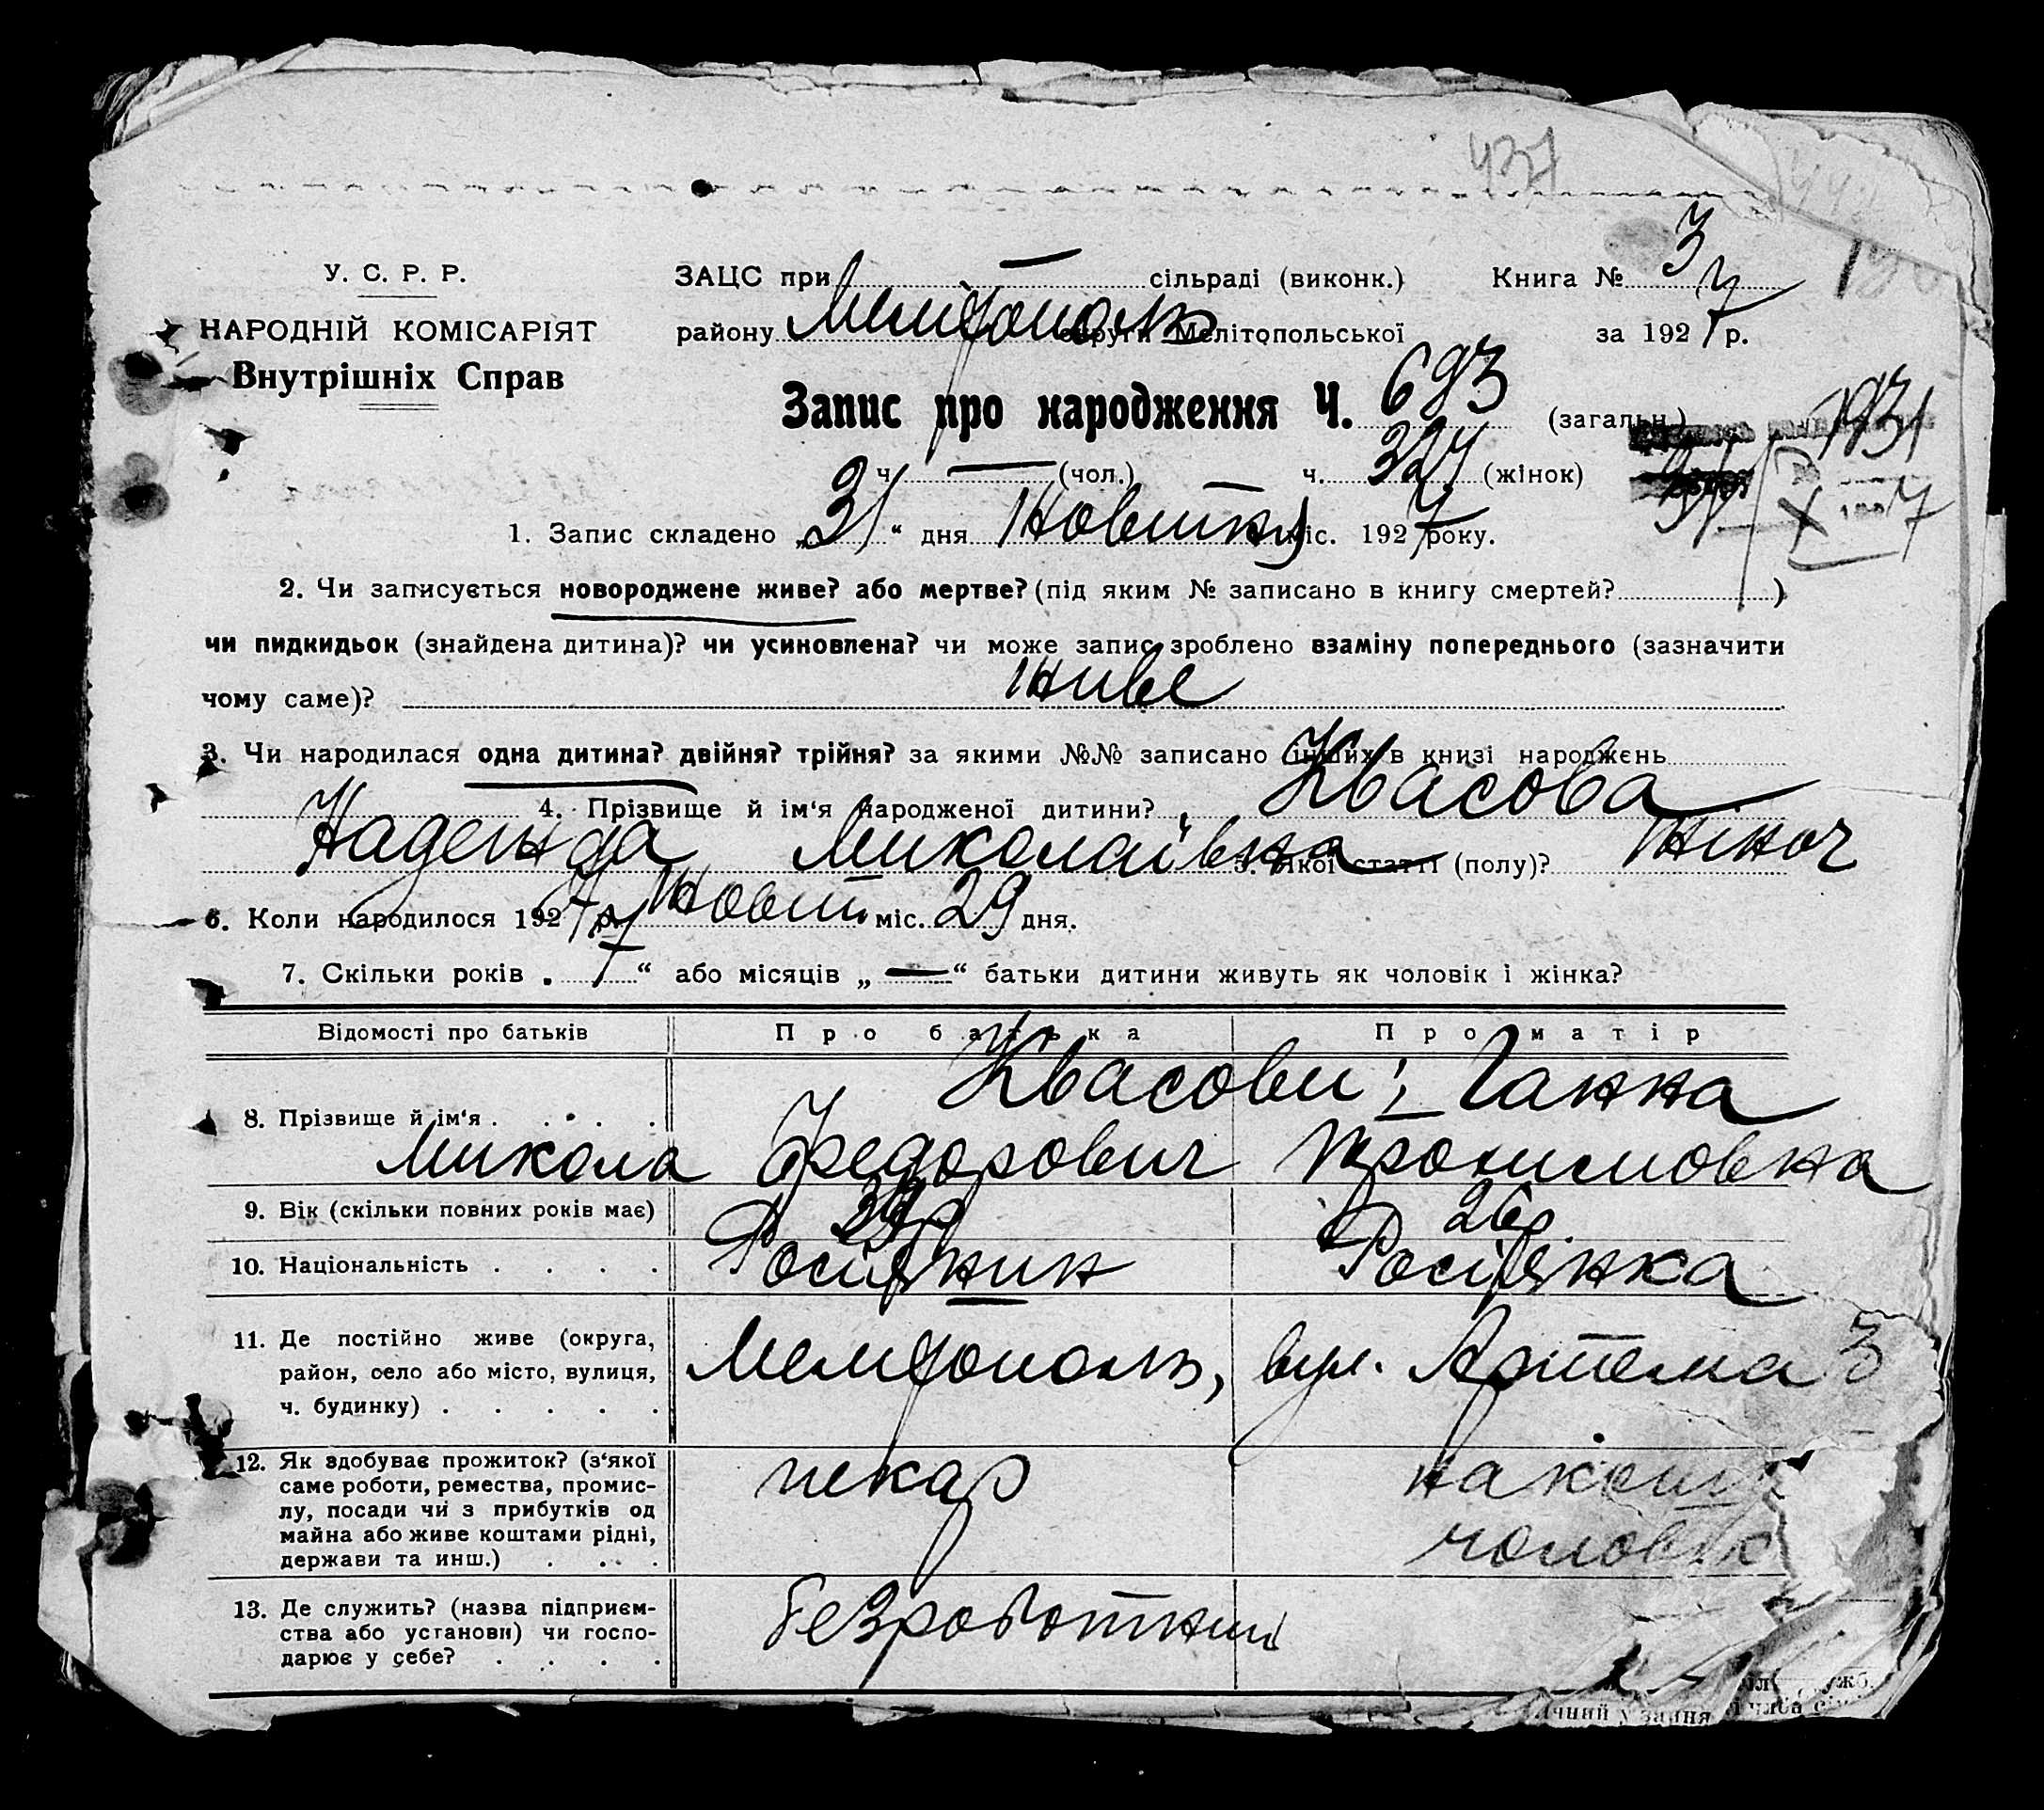 437
У. С. Р. Р.
НАРОДНІЙ КОМІСАРІЯТ
Внутрішніх Справ
ЗАЦС при — сільраді (виконк.) Книга № 3
району Мелітополь округи Мелітопольської за 1927 р.
Запис про народження Ч. 693 (загальн.)
ч. — (чол.) ч. 327 (жінок)
1. Запис складено „31“ дня Жовтня міс. 1927 року.
2. Чи записується новороджене живе? або мертве? (під яким № записано в книгу смертей? )
чи пидкидьок (знайдена дитина)? чи усиновлена? чи може запис зроблено взаміну попереднього (зазначити
чому саме)? Живе
3. Чи народилася одна дитина? двійня? трійня? за якими №№ записано інших в книзі народжень
4. Прізвище й ім‘я народженої дитини? Квасова
Надежда Миколаївна 5. Якої статті (полу)? жіноч
6. Коли народилося 1927 р. Жовт. міс. 29 дня.
7. Скільки років „1“ або місяців „—“ батьки дитини живуть як чоловік і жінка?
Відомості про батьків Про батька Про матір
8. Прізвище й ім‘я . . . . Квасови; Ганна
Микола Федорович Трохимовна
9. Вік (скільки повних років має) 26
10. Національність . . . . Росіянин Росіянка
11. Де постійно живе (округа,
район, село або місто, вулиця,
ч. будинку) . . . . . Мелітополь, вул. Артема 3
12. Як здобуває прожиток? (з‘якої
саме роботи, ремества, промис-
лу, посади чи з прибутків од
майна або живе коштами рідні,
держави та инш.) . . . пекар на
13. Де служить? (назва підприєм-
ства або установи) чи госпо-
дарює у себе? . . . . безроботний